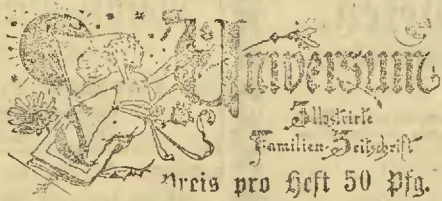 Universum
Illustrirte
Familien-Zeitschrift
Preis pro Heft 50 Pfg.